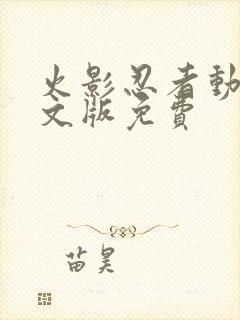 火影忍者動
文版免費
苗昊